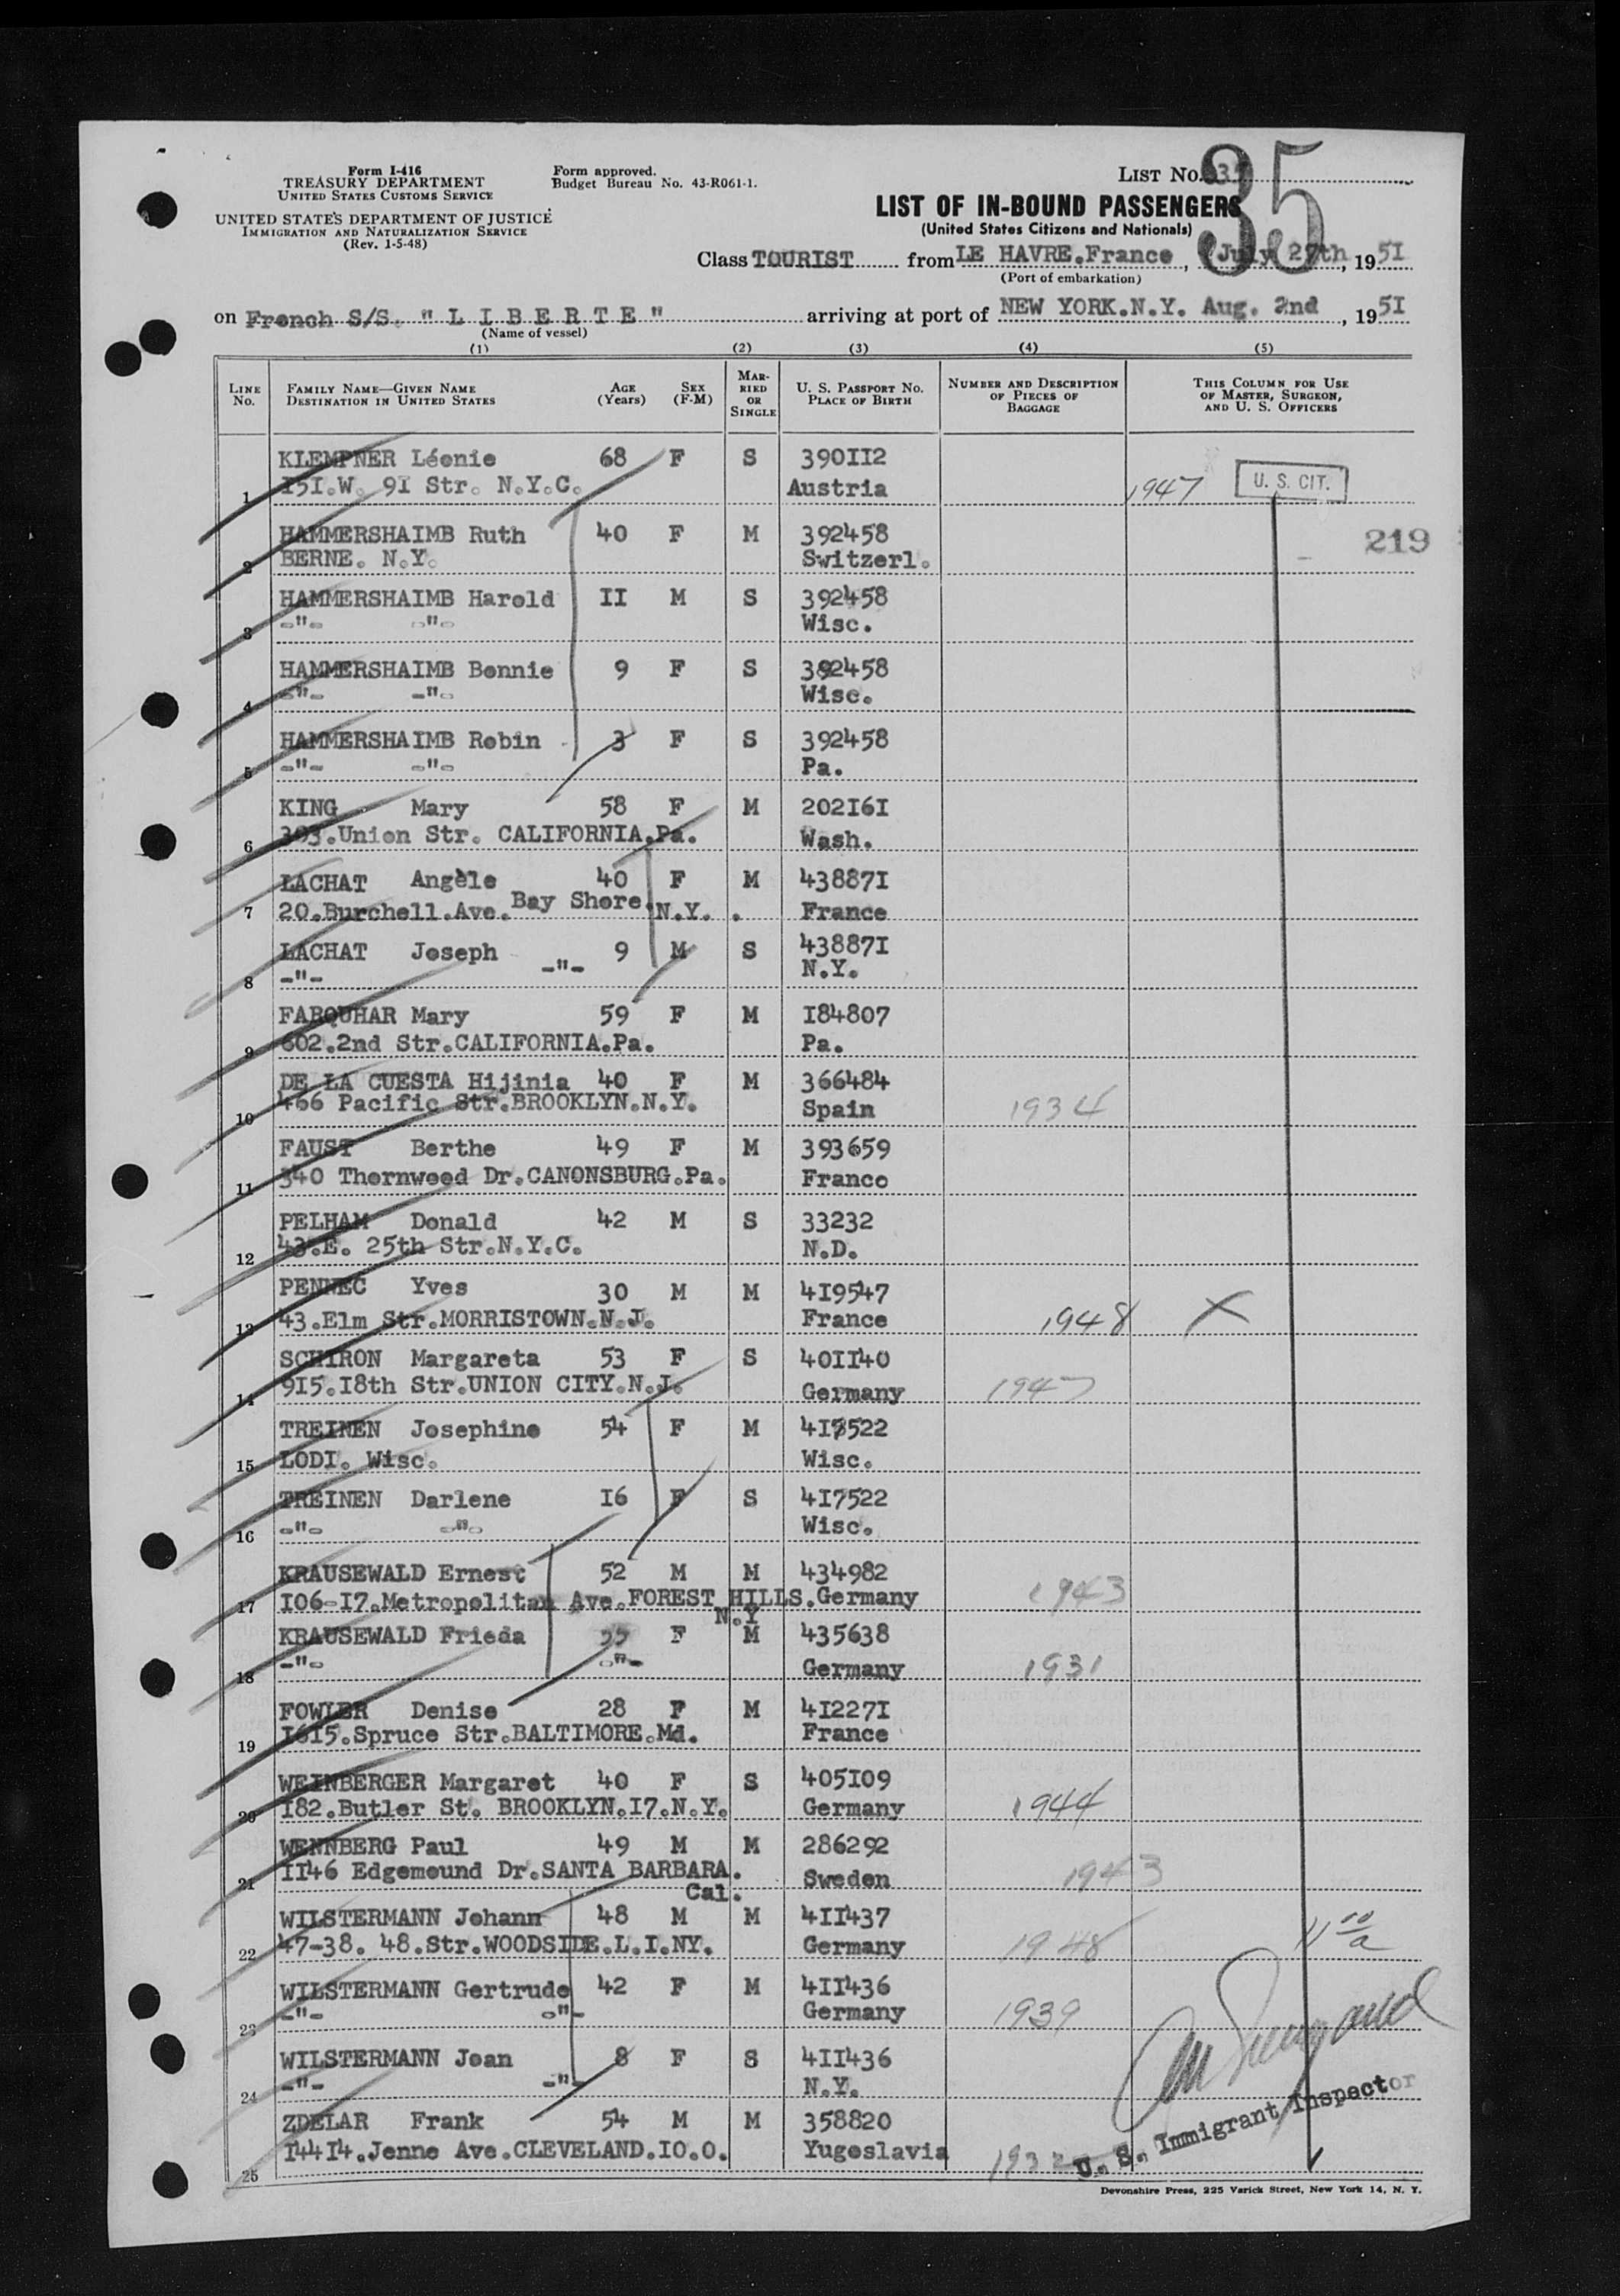 Form I-416
TREASURY DEPARTMENT
UNITED STATES CUSTOMS SERVICE
UNITED STATES DEPARTMENT OF JUSTICE
IMMIGRATION AND NATURALIZATION SERVICE
(Rev. 1-5-48)
Form approved.
Budget Bureau No. 43-R061-1.
LIST No. 35
35
LIST OF IN-BOUND PASSENGERS
(United States Citizens and Nationals)
Class TOURIST from LE HAVRE.France, July 27th, 1951
(Port of embarkation)
on French S/S. " L I B E R T E " arriving at port of NEW YORK.N.Y. Aug. 2nd, 1951
(Name of vessel)
(1) (2) (3) (4) (5)
LINE No. FAMILY NAME—GIVEN NAME DESTINATION IN UNITED STATES AGE (Years) SEX (F-M) MARRIED OR SINGLE U. S. PASSPORT No. PLACE OF BIRTH NUMBER AND DESCRIPTION OF PIECES OF BAGGAGE THIS COLUMN FOR USE OF MASTER, SURGEON, AND U. S. OFFICERS
KLEMPNER Léonie 68 F S 390II2
1 I5I.W. 9I Str. N.Y.C. Austria 1947 U. S. CIT.
HAMMERSHAIMB Ruth 40 F M 392458 219
2 BERNE. N.Y. Switzerl.
HAMMERSHAIMB Harold II M S 392458
3 -"- -"- Wisc.
HAMMERSHAIMB Bonnie 9 F S 392458
4 -"- -"- Wisc.
HAMMERSHAIMB Robin 3 F S 392458
5 -"- -"- Pa.
KING Mary 58 F M 202I6I
6 393.Union Str. CALIFORNIA.Pa. Wash.
LACHAT Angèle 40 F M 43887I
7 20.Burchell.Ave.Bay Shore.N.Y. . France
LACHAT Joseph 9 M S 43887I
8 -"- -"- N.Y.
FARQUHAR Mary 59 F M I84807
9 602.2nd Str.CALIFORNIA.Pa. Pa.
DE LA CUESTA Hijinia 40 F M 366484
10 466 Pacific Str.BROOKLYN.N.Y. Spain 1934
FAUST Berthe 49 F M 393659
11 340 Thornwood Dr.CANONSBURG.Pa. France
PELHAM Donald 42 M S 33232
12 43.E. 25th Str.N.Y.C. N.D.
PENNEC Yves 30 M M 4I9547
13 43.Elm Str.MORRISTOWN.N.J. France 1948 X
SCHIRON Margareta 53 F S 40II40
14 9I5.I8th Str.UNION CITY.N.J. Germany 1947
TREINEN Josephine 54 F M 4I7522
15 LODI. Wisc. Wisc.
TREINEN Darlene I6 F S 4I7522
16 -"- -"- Wisc.
KRAUSEWALD Ernest 52 M M 434982
17 I06-I7.Metropolitan Ave.FOREST HILLS. Germany 1943
N.Y
KRAUSEWALD Frieda 55 F M 435638
18 -"- -"- Germany 1931
FOWLER Denise 28 F M 4I227I
19 I6I5.Spruce Str.BALTIMORE.Md. France
WEINBERGER Margaret 40 F S 405I09
20 I82.Butler St. BROOKLYN.I7.N.Y. Germany 1944
WENNBERG Paul 49 M M 286292
21 II46 Edgemound Dr.SANTA BARBARA. Sweden 1943
Cal.
WILSTERMANN Johann 48 M M 4II437
22 47-38. 48.Str.WOODSIDE.L.I.NY. Germany 1948
WILSTERMANN Gertrude 42 F M 4II436
23 -"- -"- Germany 1939
WILSTERMANN Joan 8 F S 4II436
24 -"- -"- N.Y.
ZDELAR Frank 54 M M 358820
25 I44I4.Jenne Ave.CLEVELAND.IO.O. Yugoslavia 1932
U. S. Immigrant Inspector
Devonshire Press, 225 Varick Street, New York 14, N. Y.